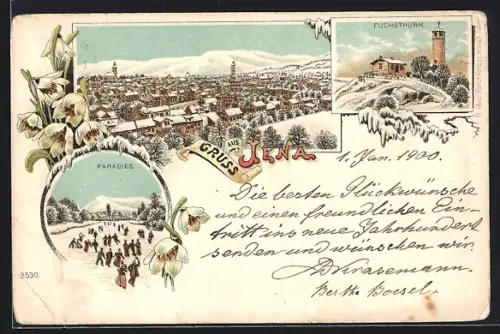 FUCHSTHURM
GRUSS
AUS
JENA
PARADIES
1. Jan. 1900.
Die besten Glückwünsche
und einen freundlichen Ein-
tritt ins neue Jahrhundert
senden und wünschen wir.
Bertha Boesel.
3530.